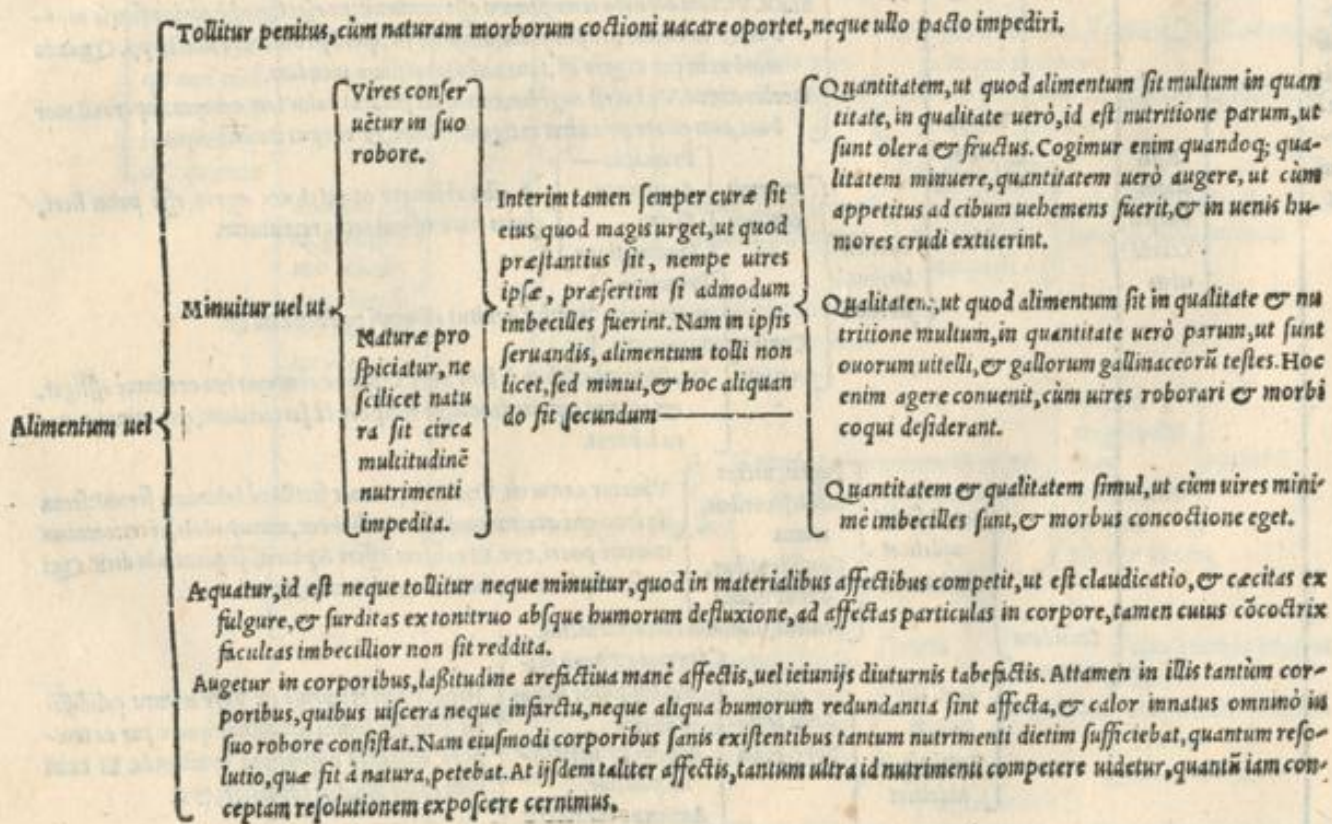 Tollitur penitus, cùm naturam morborum coctioni uacare oportet, neque ullo pacto impediri.
Alimentum uel
Minuitur uel ut
Vires conser
uẽtur in suo
robore.
Naturæ pro
spiciatur, ne
scilicet natu
ra sit circa
multitudinẽ
nutrimenti
impedita.
Interim tamen semper curæ sit
eius quod magis urget, ut quod
præstantius sit, nempe uires
ipsæ, præsertim si admodum
imbecilles fuerint. Nam in ipsis
seruandis, alimentum tolli non
licet, sed minui, & hoc aliquan
do fit secundum
Quantitatem, ut quod alimentum sit multum in quan
titate, in qualitate uerò, id est nutritione parum, ut
sunt olera & fructus. Cogimur enim quandoq; qua-
litatem minuere, quantitatem uerò augere, ut cùm
appetitus ad cibum uehemens fuerit, & in uenis hu-
mores crudi extiterint.
Qualitatem, ut quod alimentum sit in qualitate & nu
tritione multum, in quantitate uerò parum, ut sunt
ouorum uitelli, & gallorum gallinaceorũ testes. Hoc
enim agere conuenit, cùm uires roborari & morbi
coqui desiderant.
Quantitatem & qualitatem simul, ut cùm uires mini-
mè imbecilles sunt, & morbus concoctione eget.
Æquatur, id est neque tollitur neque minuitur, quod in materialibus affectibus competit, ut est claudicatio, & cæcitas ex
fulgure, & surditas ex tonitruo absque humorum defluxione, ad affectas particulas in corpore, tamen cuius cõcoctrix
facultas imbecillior non sit reddita.
Augetur in corporibus, laßitudine arefactiua manè affectis, uel ieiunijs diuturnis tabefactis. Attamen in illis tantùm cor-
poribus, quibus uiscera neque infarctu, neque aliqua humorum redundantia sint affecta, & calor innatus omninò in
suo robore consistat. Nam eiusmodi corporibus sanis existentibus tantum nutrimenti dietim sufficiebat, quantum reso-
lutio, quæ fit à natura, petebat. At ijsdem taliter affectis, tantum ultra id nutrimenti competere uidetur, quantũ iam con-
ceptam resolutionem exposcere cernimus.